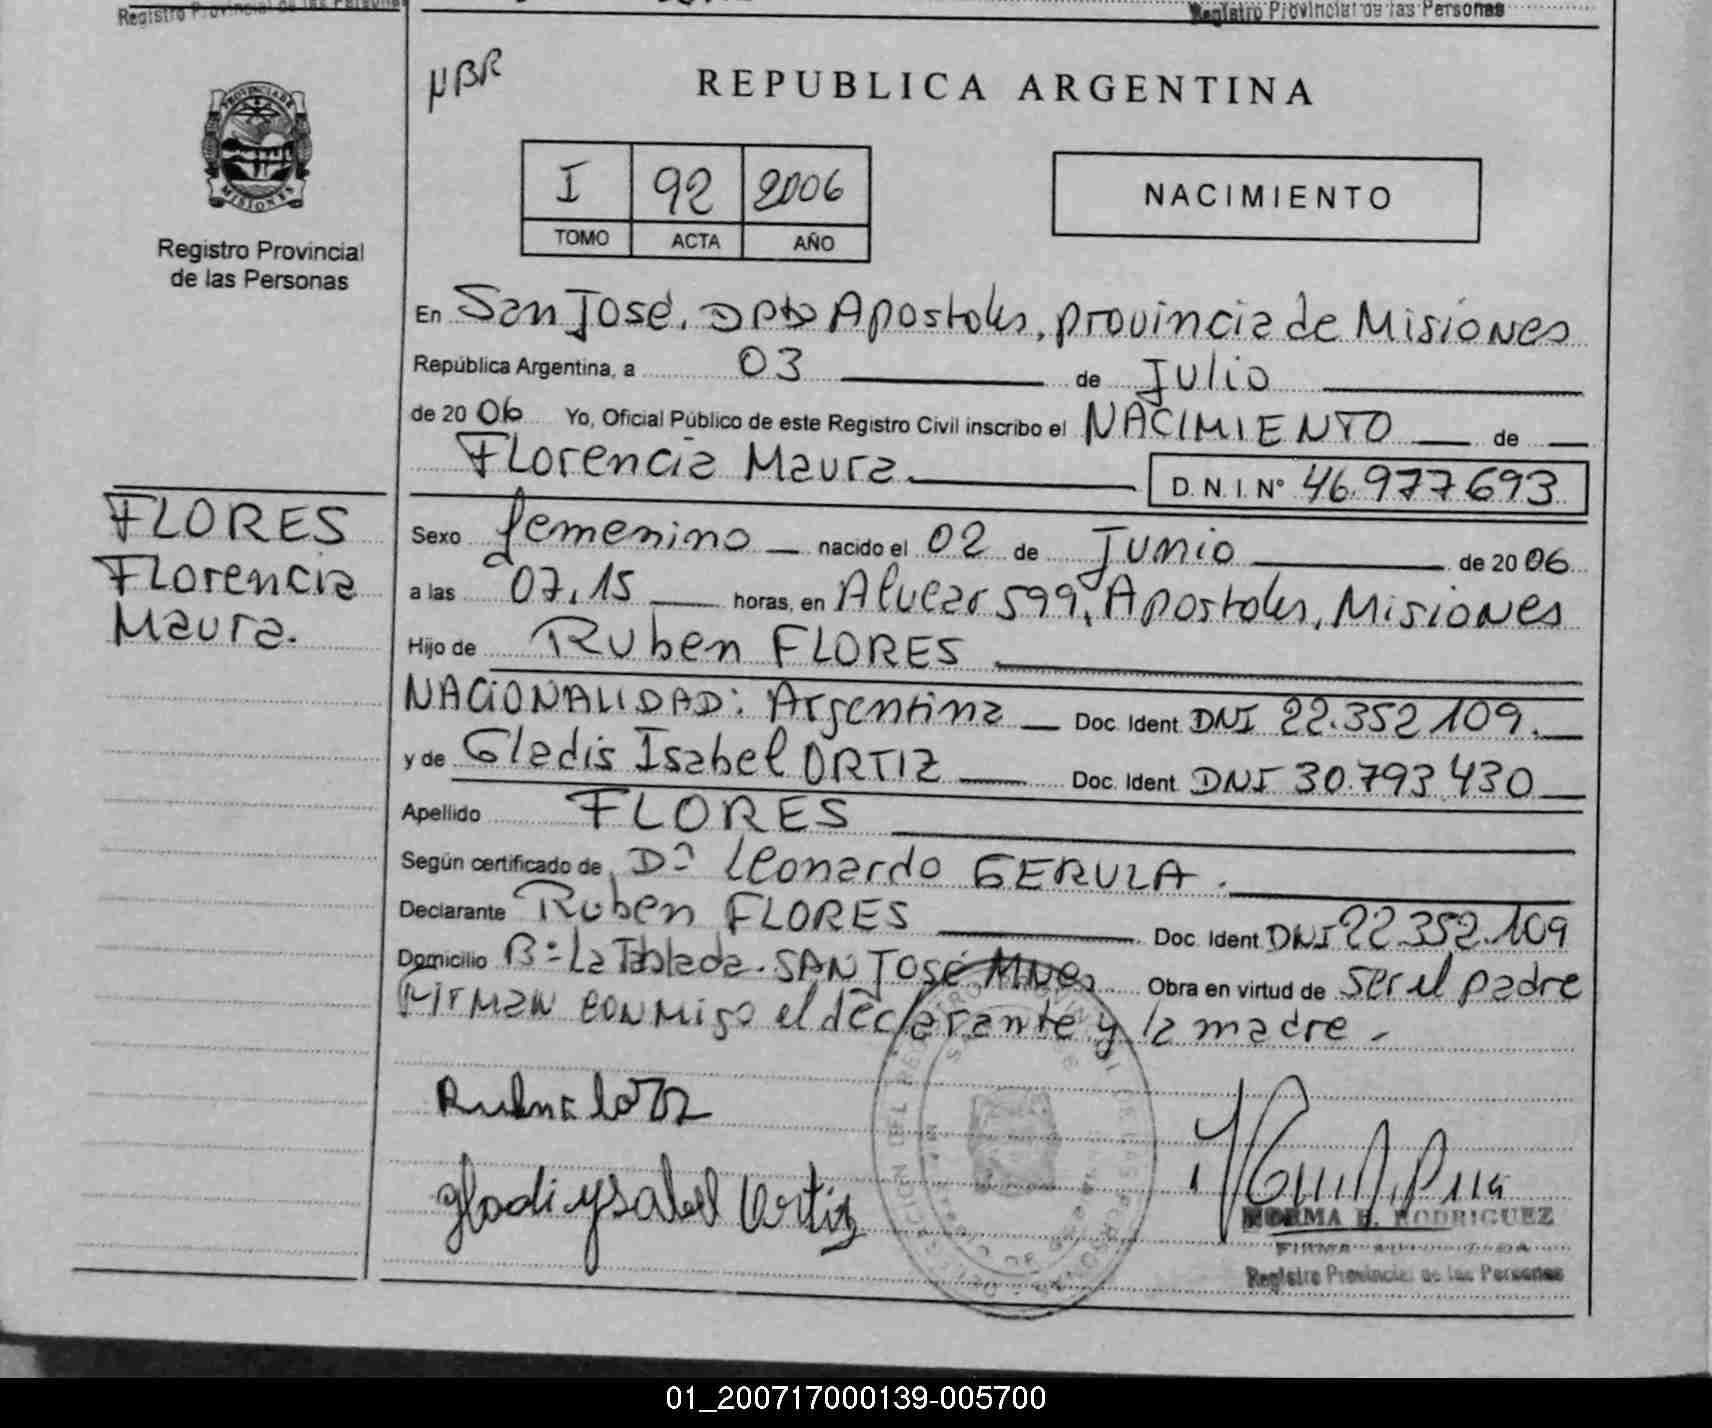 Registro Provincial de las Personas
Registro Provincial de las Personas
PROVINCIA DE
MISIONES
Registro Provincial
de las Personas
FLORES
Florencia
Maura.
NBR
REPUBLICA ARGENTINA
I 92 2006
TOMO ACTA AÑO
NACIMIENTO
En San José, Dpto Apostoles, provincia de Misiones
República Argentina, a 03 de Julio
de 20 06 Yo, Oficial Público de este Registro Civil inscribo el NACIMIENTO de
Florencia Maura D.N.I. Nº 46.977693
Sexo femenino nacido el 02 de Junio de 20 06
a las 07,15 horas, en Alvear 599, Apostoles, Misiones
Hijo de Ruben FLORES
NACIONALIDAD: Argentina Doc. Ident. DNI 22.352.109.
y de Gladis Isabel ORTIZ Doc. Ident. DNI 30.793.430
Apellido FLORES
Según certificado de Dº Leonardo GERULA.
Declarante Ruben FLORES Doc. Ident DNI 22.352.109
Domicilio Bº La Tablada. SAN José Mnes Obra en virtud de ser el padre
Firman conmigo el declarante y la madre.
gladi ysabel Ortiz
NORMA E. RODRIGUEZ
FIRMA AUTORIZADA
Registro Provincial de las Personas
01_200717000139-005700